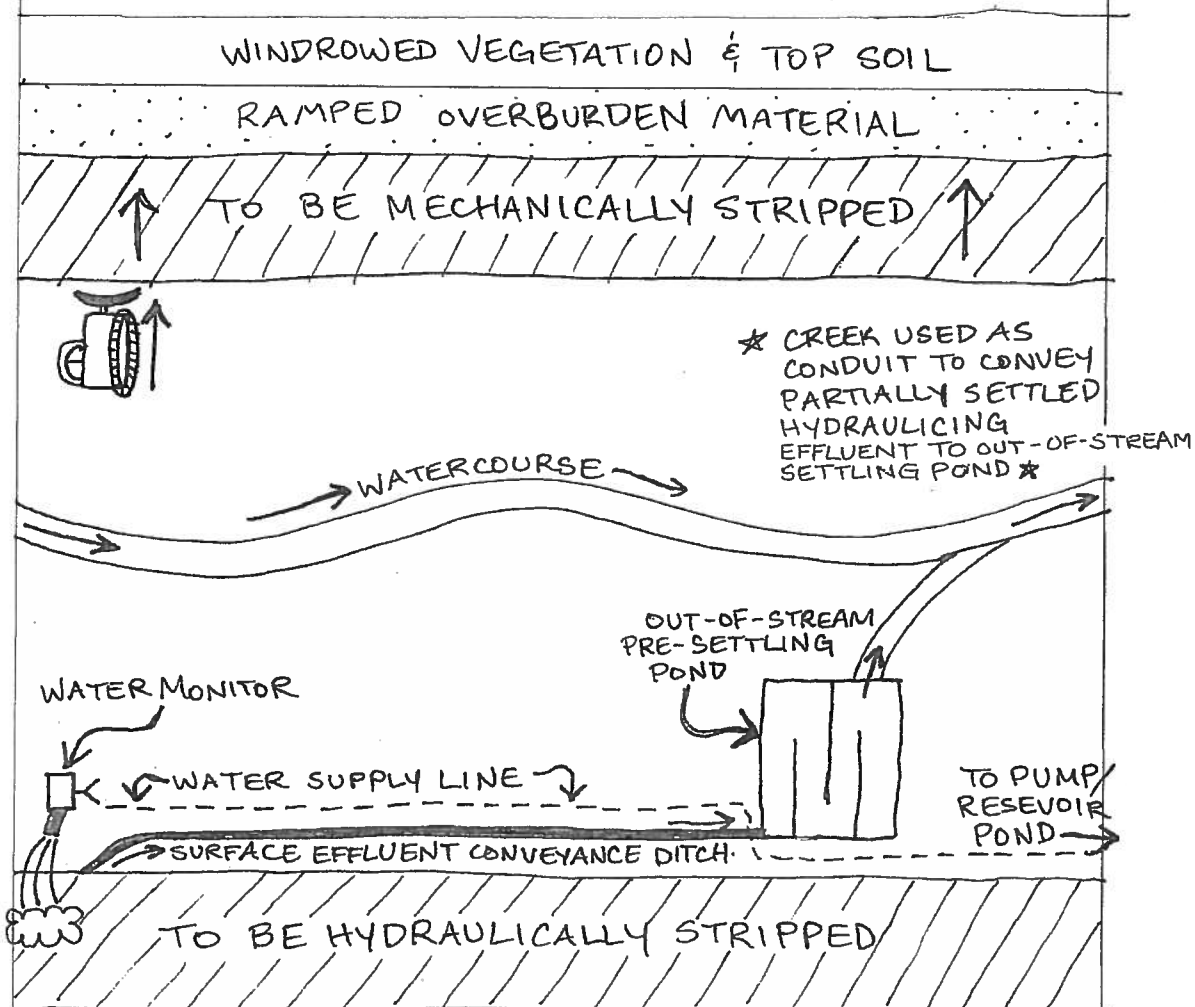 WINDROWED VEGETATION & TOP SOIL
RAMPED OVERBURDEN MATERIAL
TO BE MECHANICALLY STRIPPED
★ CREEK USED AS
CONDUIT TO CONVEY
PARTIALLY SETTLED
HYDRAULICING
EFFLUENT TO OUT-OF-STREAM
SETTLING POND ★
WATERCOURSE
OUT-OF-STREAM
PRE-SETTLING
POND
WATER MONITOR
WATER SUPPLY LINE
TO PUMP/
RESEVOIR
POND
SURFACE EFFLUENT CONVEYANCE DITCH.
TO BE HYDRAULICALLY STRIPPED